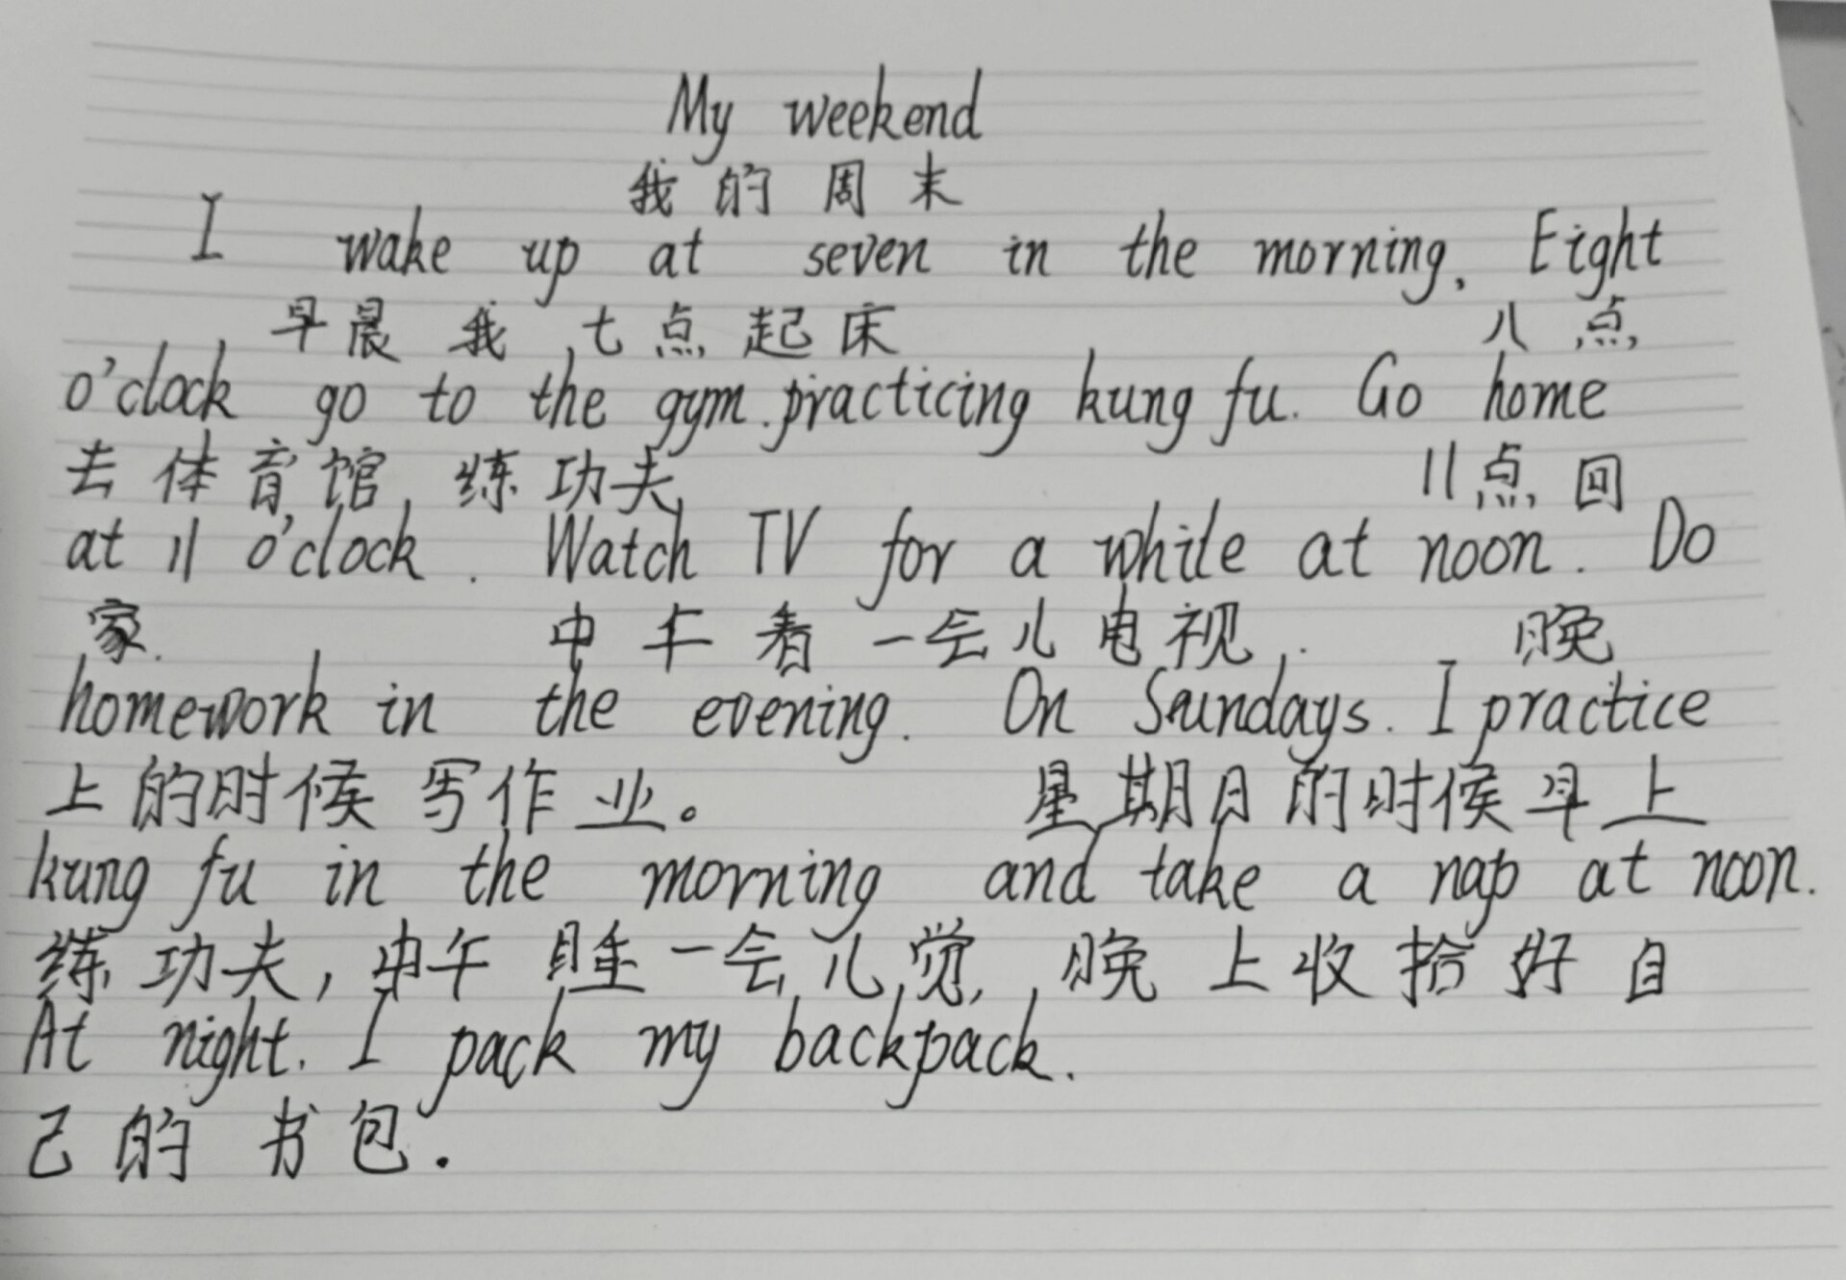 My weekend
我的周末
I wake up at seven in the morning. Eight
早晨我七点起床 八点
o'clock go to the gym.practicing kung fu. Go home
去体育馆,练功夫, 11点回
at 11 o'clock. Watch TV for a while at noon. Do
家. 中午看一会儿电视,. 晚
homework in the evening. On Saundays. I practice
上的时候写作业。 星期日的时候早上
kung fu in the morning and take a nap at noon.
练功夫,中午睡一会儿觉,晚上收拾好自
At night. I pack my backpack.
己的书包.